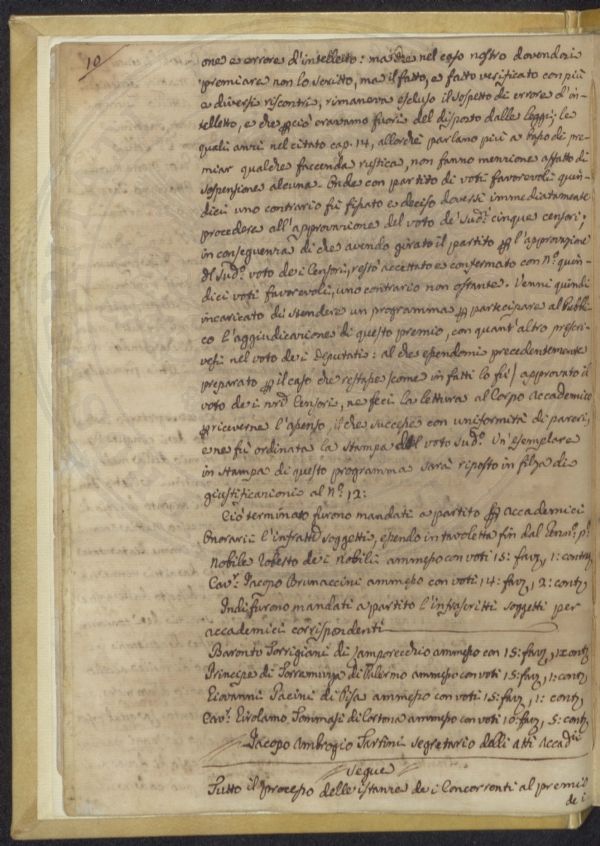 10
one e errore d'intelletto: ma che nel caso nostro dovendosi
premiare non lo scritto, ma il fatto, e fatto verificato con più
e diversi riscontri, rimaneva escluso il sospetto di errore d'in-
telletto, e che però eravamo fuori del disposto dalle leggi; le
quali anzi nel citato cap. 14, allorchè parlano più a basso di pre-
miar qualche faccenda rustica, non fanno menzione affatto di
sospensione alcuna. Onde con partito di voti favorevoli quin-
dici uno contrario fu fissato e deciso doversi immediatamente
procedere all'approvazione del voto de' Sud.i cinque censori;
in conseguenza di che avendo girato il partito p l'approvazione
del Sud.o voto de i Censori, restò accettato e confermato con N.o quin-
dici voti favorevoli, uno contrario non ostante. Venni quindi
incaricato di stendere un programma p partecipare al Pubbli-
co l'aggiudicazione di questo premio, con quant'altro prescri-
vesi nel voto de i Deputati: al che essendomi precedentemente
preparato p il caso che restasse (come in fatti lo fù) approvato il
voto de i nri Censori, ne feci la lettura al Corpo Accademico
p riceverne l'assenso, il che successe con uniformità di pareri,
e ne fù ordinata la stampa del voto Sud.o Un'esemplare
in stampa di questo programma sarà riposto in filza di
giustificazioni al N.o 12:
Ciò terminato furono mandati a partito p accademici
Onorarii l'infratti soggetti, essendo in tavoletta fin dal Genn.o p.o
Nobile Roberto de i Nobili ammesso con voti 15: fav, 1: contr
Cav.r Iacopo Brunaccini ammesso con voti 14: fav, 2: cont
Indi furono mandati a partito l'infrascritti soggetti per
accademici corrispondenti
Baronto Torrigiani di Lamporecchio ammesso con 15: fav, 1: cont
Principe di Torremuzza di Palermo ammesso con voti 15: fav, 1: cont
Giovanni Pacini di Pisa ammesso con voti 15: fav, 1: cont
Cav.r Girolamo Tommasi di Cortona ammesso con voti 10: fav, 5: cont
Iacopo Ambrogio Tartini segretario delli atti Accad.ci
Segue
Tutto il Processo delle istanze de i Concorrenti al premio
de i